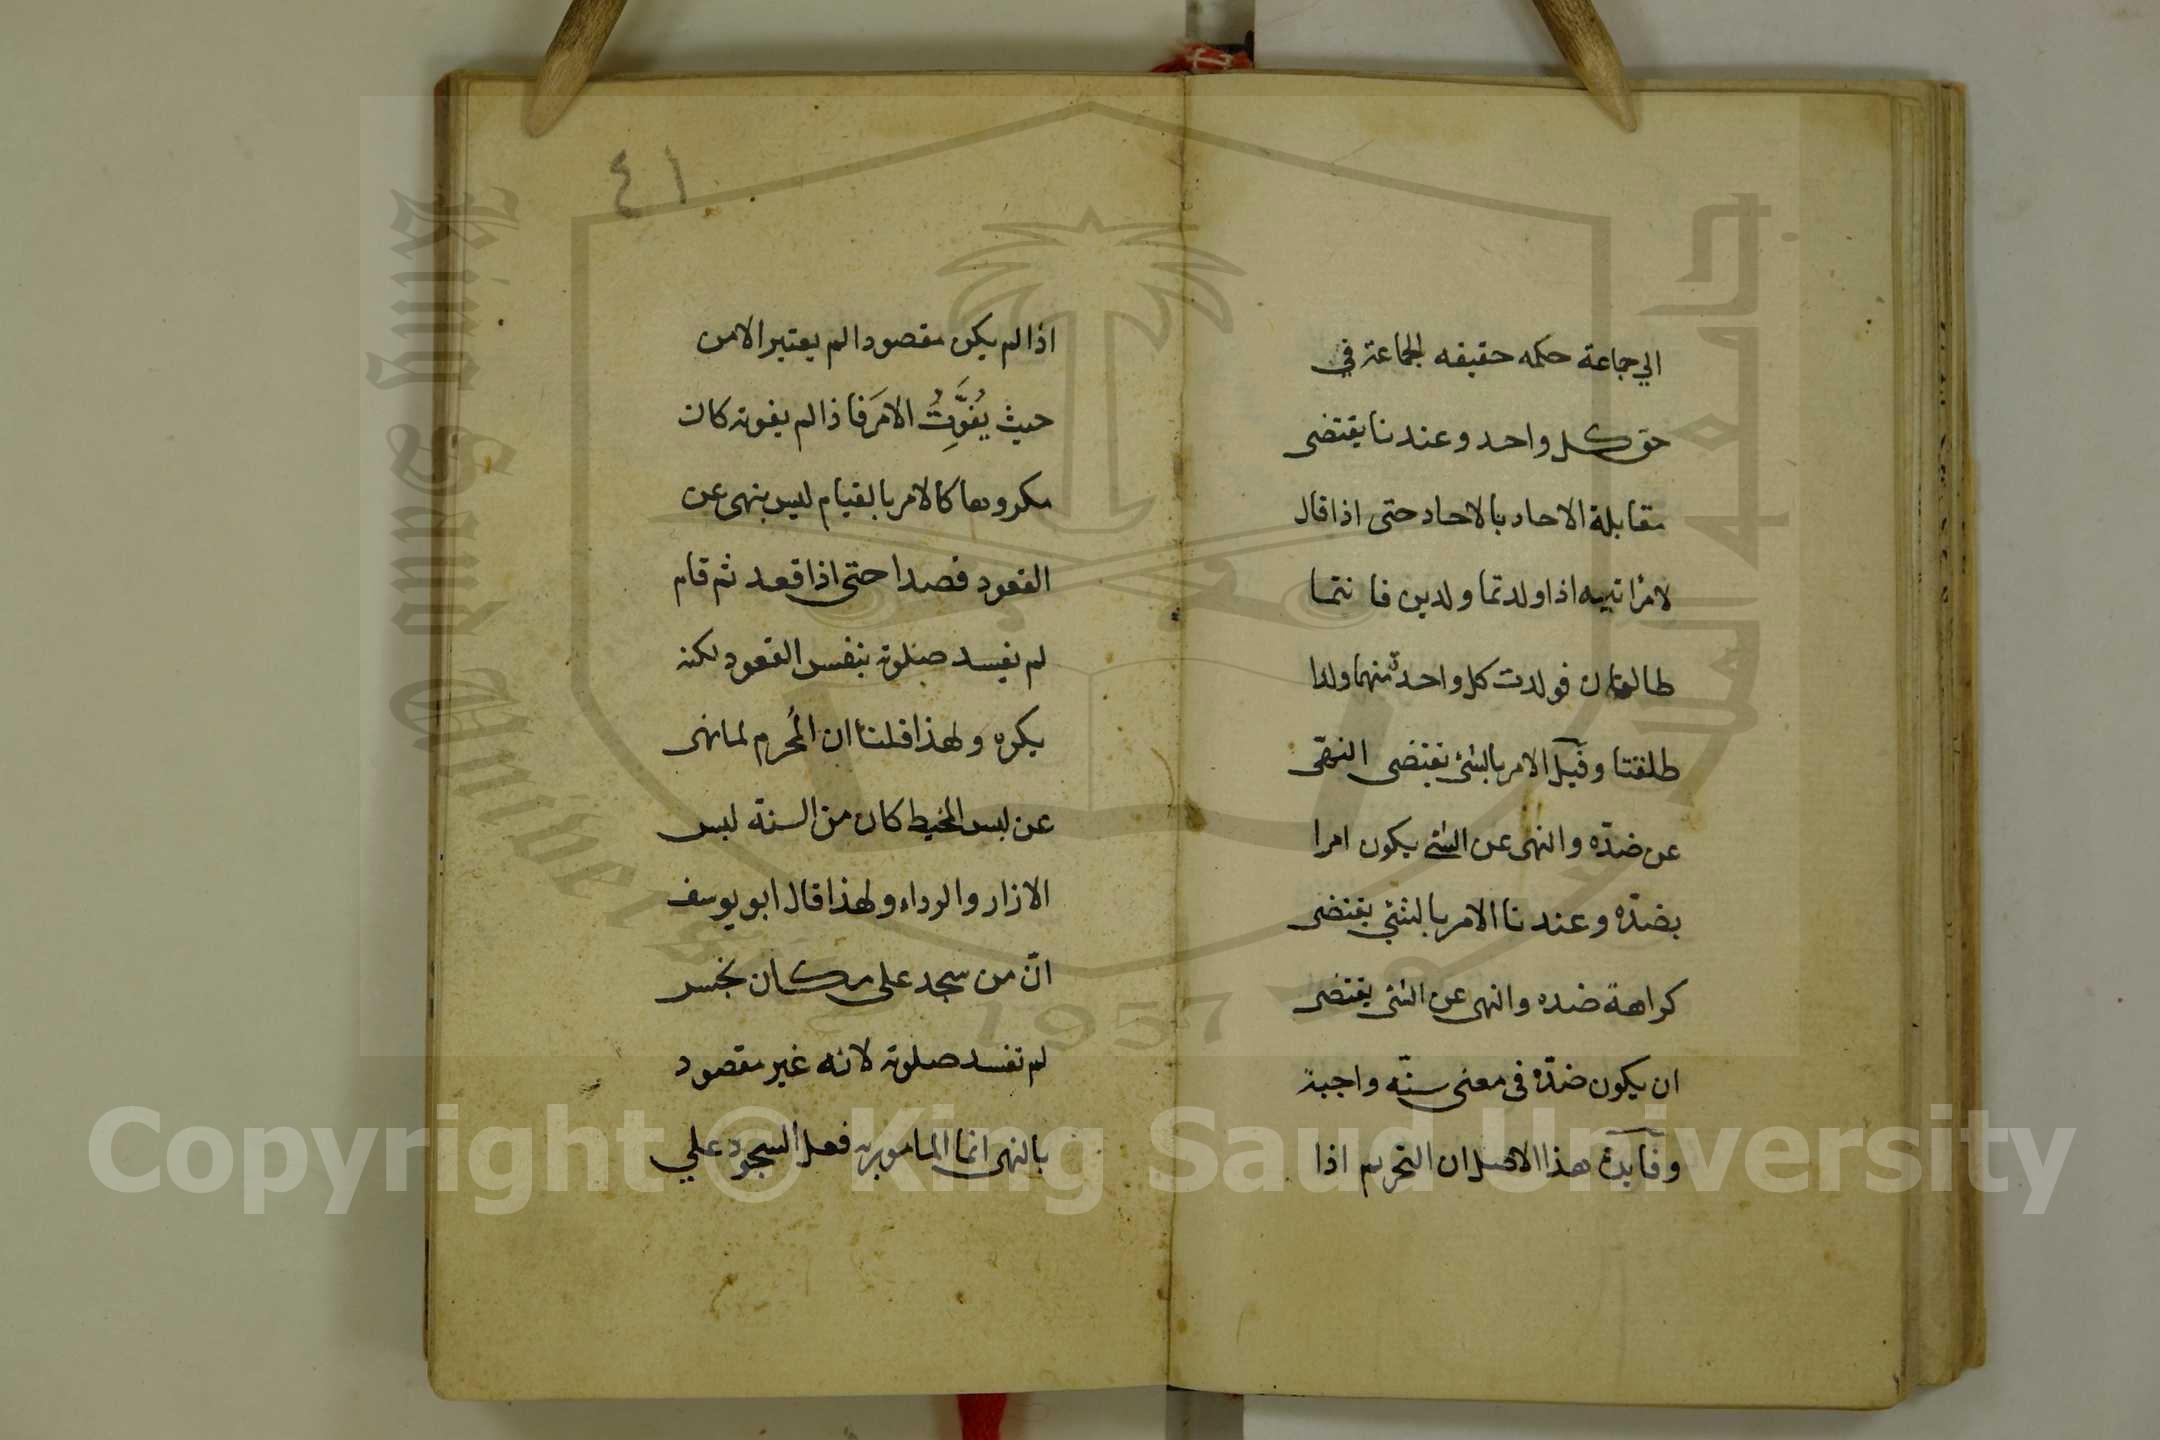 الي جماعة حكمه حقيقه الجماعة في
حق كل واحد وعندنا يقتضى
مقابلة الاحاد بالاحاد حتى اذا قال
لامراتيه اذا ولدتما ولدين فانتما
طالقان فولدت كل واحدة منهما ولدا
طلقتا وقيل الامر بالشئ يقتضى النهى
عن ضدّه والنهى عن الشئ يكون امرا
بضدّه وعندنا الامر بالشئ يقتضى
كراهة ضده والنهى عن الشئ يقتضى
ان يكون ضدّه فى معنى سنّه واجبة
وفايدة هذا الاصل ان التحريم اذا
٤١
اذا لم يكن مقصودا لم يعتبر الا من
حيث يُفَوِّتُ الامَر فاذا لم يفوته كان
مكروها كالامر بالقيام ليس بنهى عن
القعود قصدا حتى اذا قعد ثم قام
لم يفسد صلوته بنفس القعود لكنه
يكره ولهذا قلنا ان المُحرم لما نهى
عن لبس المخيط كان من السنة لبس
الازار والرداء ولهذا قال ابو يوسف
انّ من سجد على مكان نجس
لم تفسد صلوته لانه غير مقصود
بالنهى انما المامور به فعل السجود علي
King Saud University
جامعة الملك سعود
1957
Copyright © King Saud University